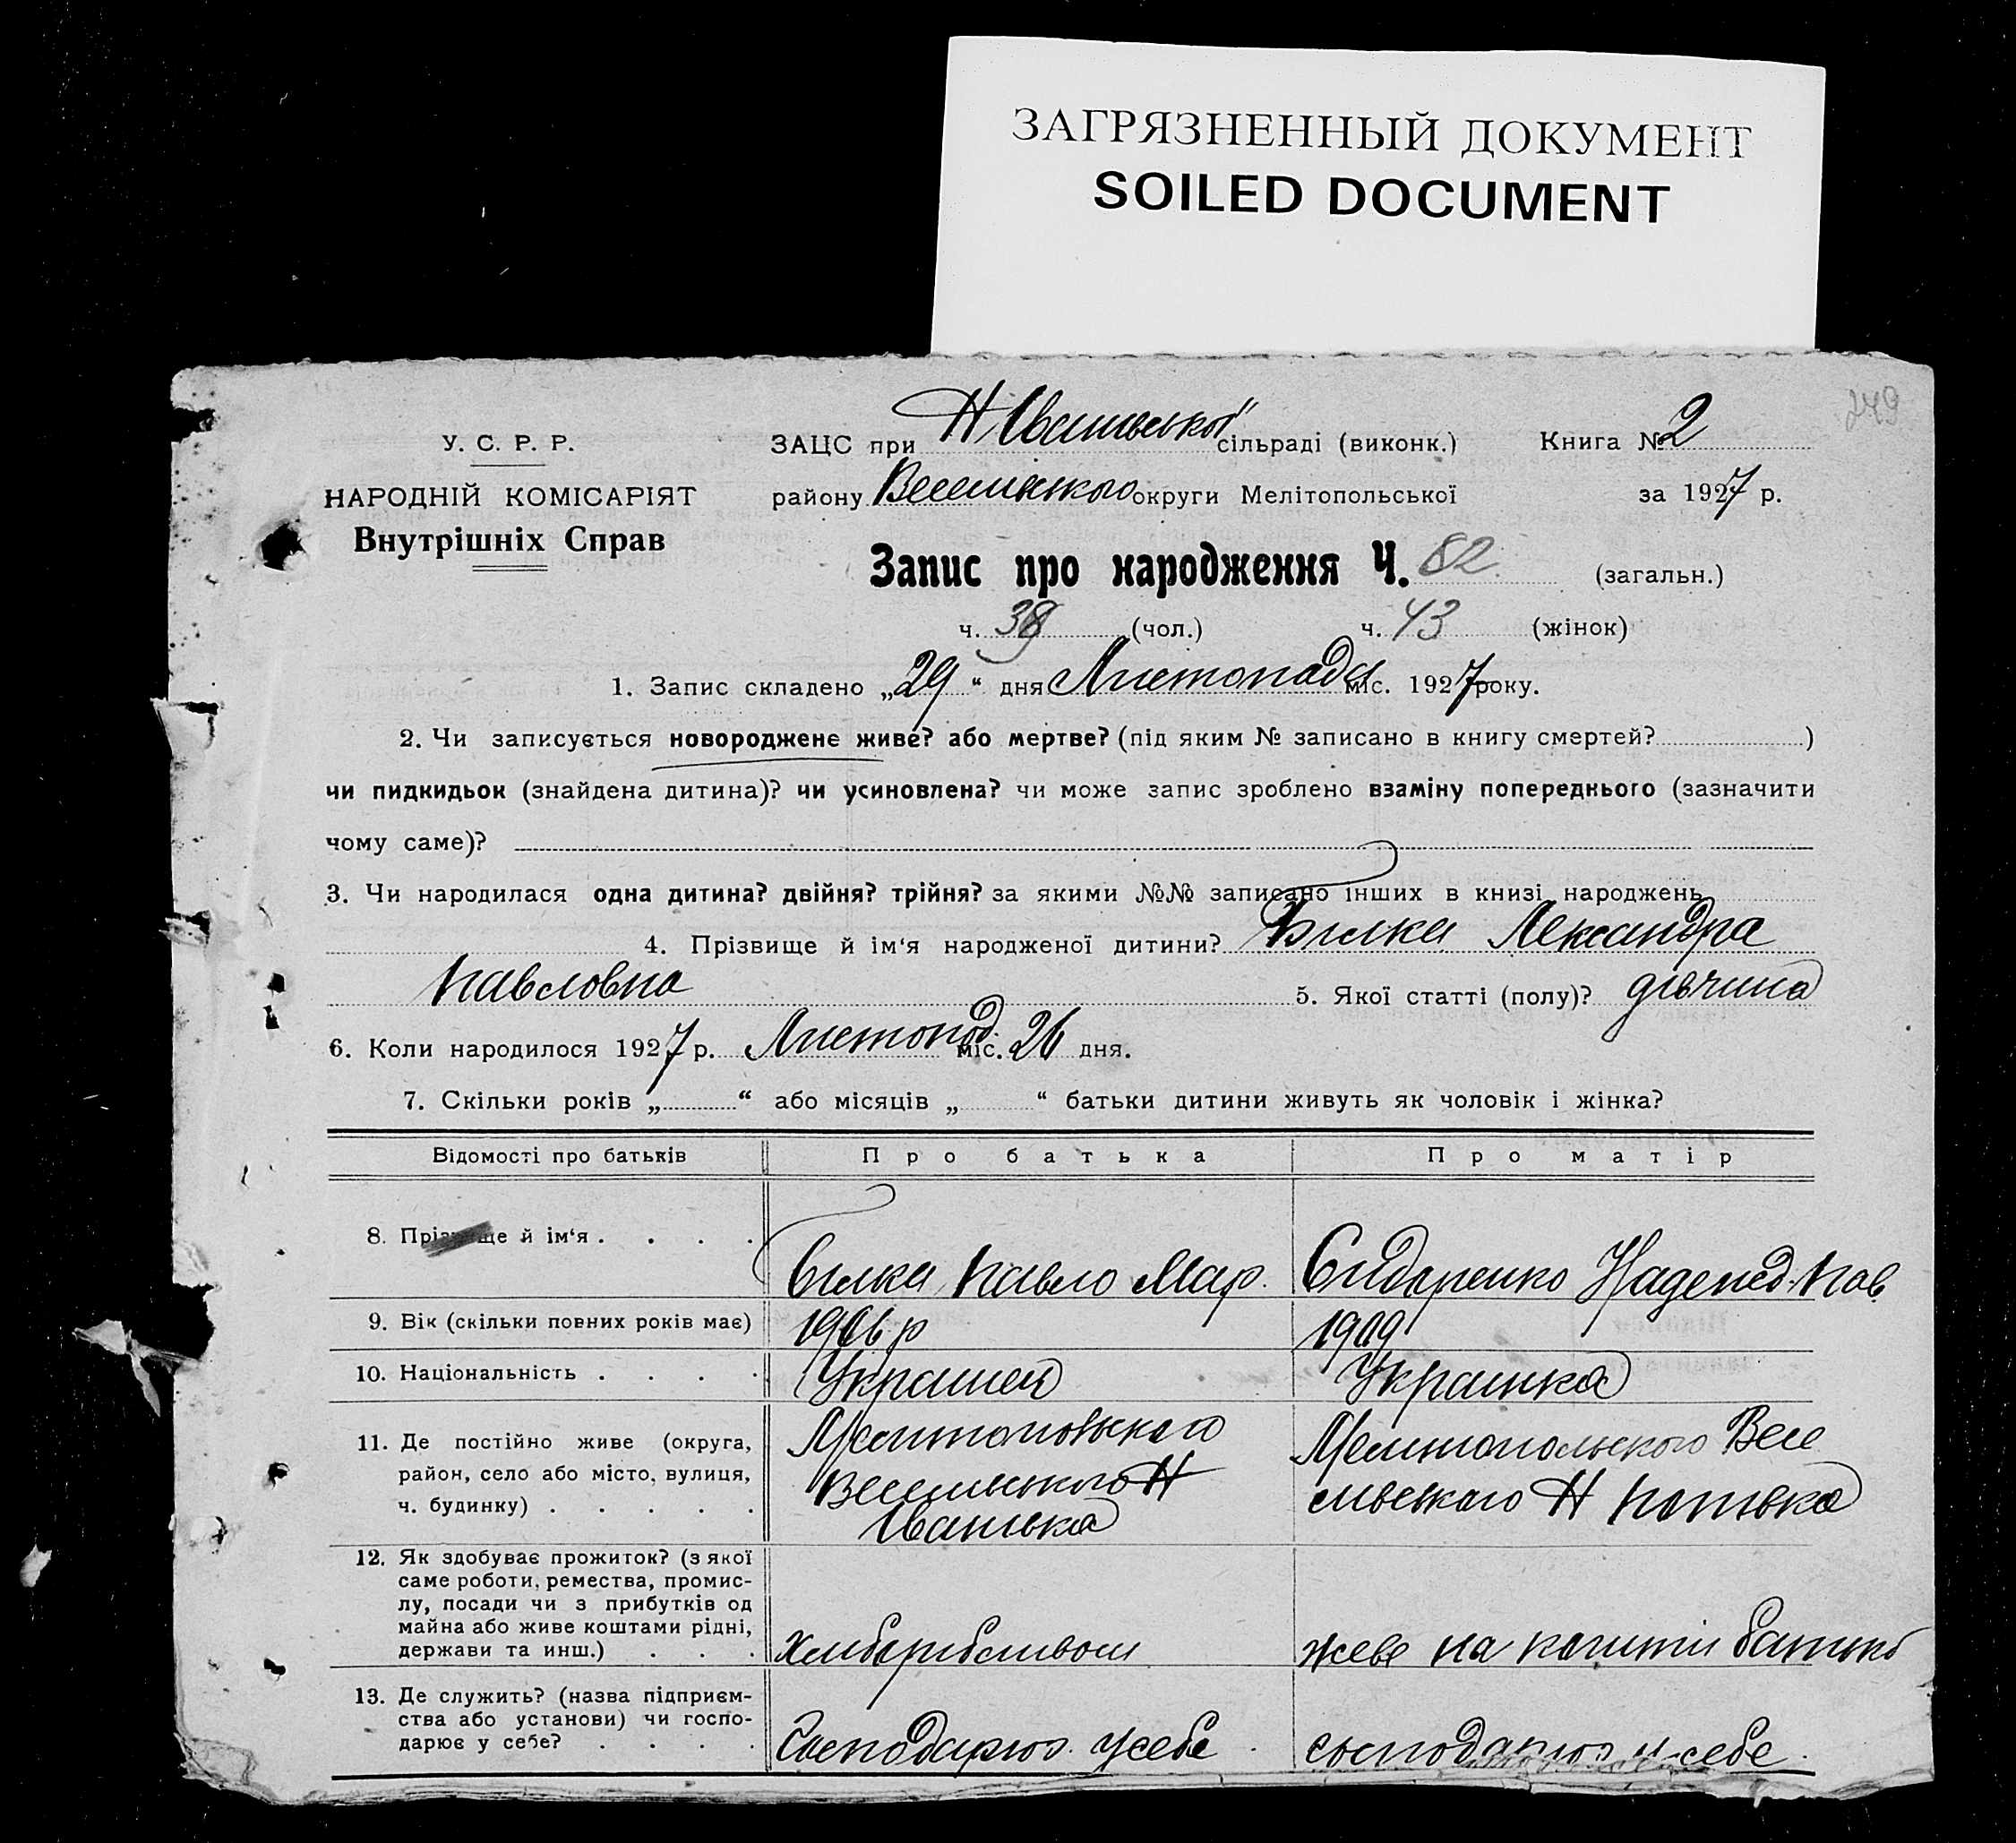 ЗАГРЯЗНЕННЫЙ ДОКУМЕНТ
SOILED DOCUMENT
249
У. С. Р. Р.
НАРОДНІЙ КОМІСАРІЯТ
Внутрішніх Справ
ЗАЦС при Н Іванівської сільраді (виконк.) Книга № 2
району Веселівського округи Мелітопольської за 1927 р.
Запис про народження Ч. 82 (загальн.)
ч. 39 (чол.) ч. 43 (жінок)
1. Запис складено „29“ дня Листопада міс. 1927 року.
2. Чи записується новороджене живе? або мертве? (під яким № записано в книгу смертей? )
чи пидкидьок (знайдена дитина)? чи усиновлена? чи може запис зроблено взаміну попереднього (зазначити
чому саме)?
3. Чи народилася одна дитина? двійня? трійня? за якими №№ записано інших в книзі народжень
4. Прізвище й ім‘я народженої дитини? Білка Лександра
Павловна 5. Якої статті (полу)? дівчина
6. Коли народилося 1927 р. Листопад міс. 26 дня.
7. Скільки років „ “ або місяців „ “ батьки дитини живуть як чоловік і жінка?
Відомості про батьків Про батька Про матір
8. Прізвище й ім‘я . . . . Білка Павло Мар. Сидоренко Надежд. Пав
9. Вік (скільки повних років має) 1906 р 1909
10. Національність . . . . Украинец Украинка
11. Де постійно живе (округа,
район, село або місто, вулиця,
ч. будинку) . . . . .
Мелітопольского
Веселівського Н
Іванівка
Мелитопольского Весе
лівского Н
12. Як здобуває прожиток? (з якої
саме роботи, ремества, промис-
лу, посади чи з прибутків од
майна або живе коштами рідні,
держави та инш.) . . .
Хлиборобством
живе на кошти батьків
13. Де служить? (назва підприєм-
ства або установи) чи госпо-
дарює у себе? . . . .
Господарює у себе
господарює у себе